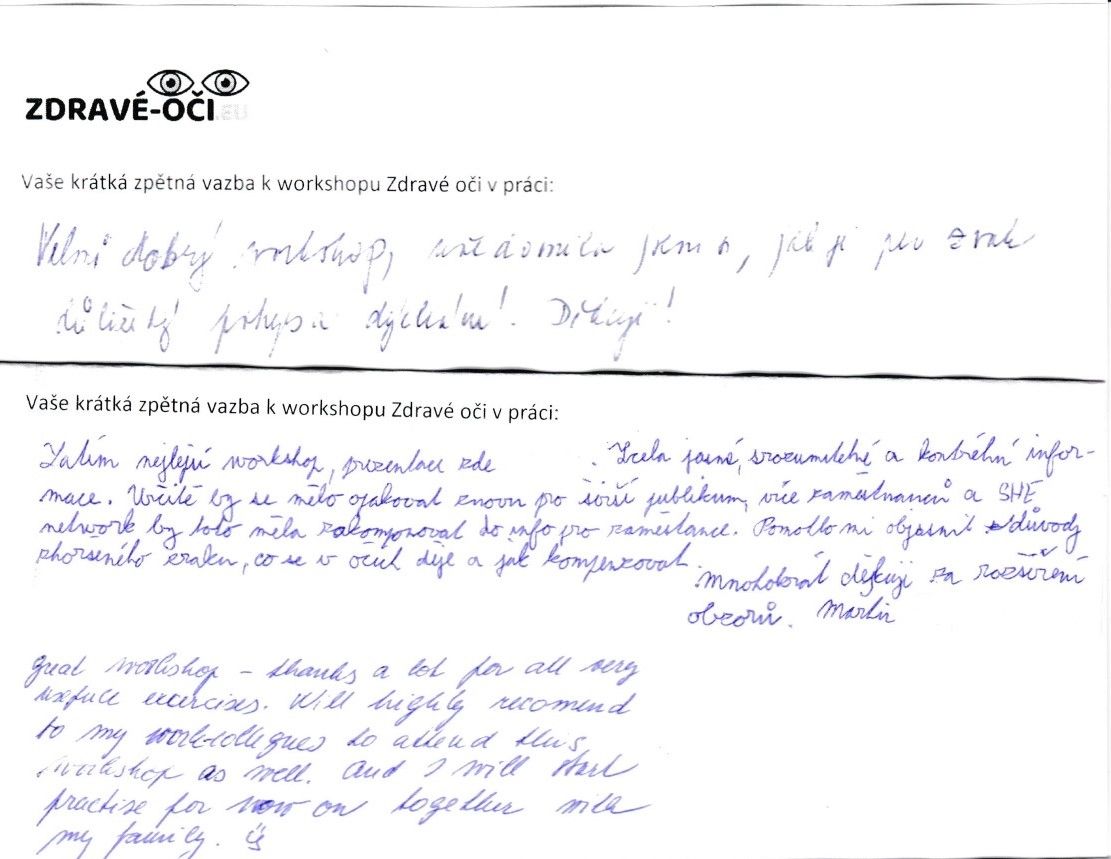 ZDRAVÉ-OČI.EU
Vaše krátká zpětná vazba k workshopu Zdravé oči v práci:
Velmi dobrý workshop, uvědomila jsem si, jak je pro zrak
důležitý pohyb a dýchání! Děkuji!
Vaše krátká zpětná vazba k workshopu Zdravé oči v práci:
Zatím nejlepší workshop, prezentace zde . Zcela jasné, srozumitelné a konkrétní infor-
mace. Určitě by se mělo opakovat znovu pro širší publikum, více zaměstnanců a SHE
network by toto měla zakomponovat do info pro zaměstance. Pomohlo mi objasnit důvody
zhoršeného zraku, co se v očích děje a jak kompenzovat.
Mnohokrát děkuji za rozšíření
obzorů. Martin
great workshop – thanks a lot for all very
usefull excercises. Will highly recomend
to my work-collegues to attend this
workshop as well. And I will start
practise for now on together with
my family.